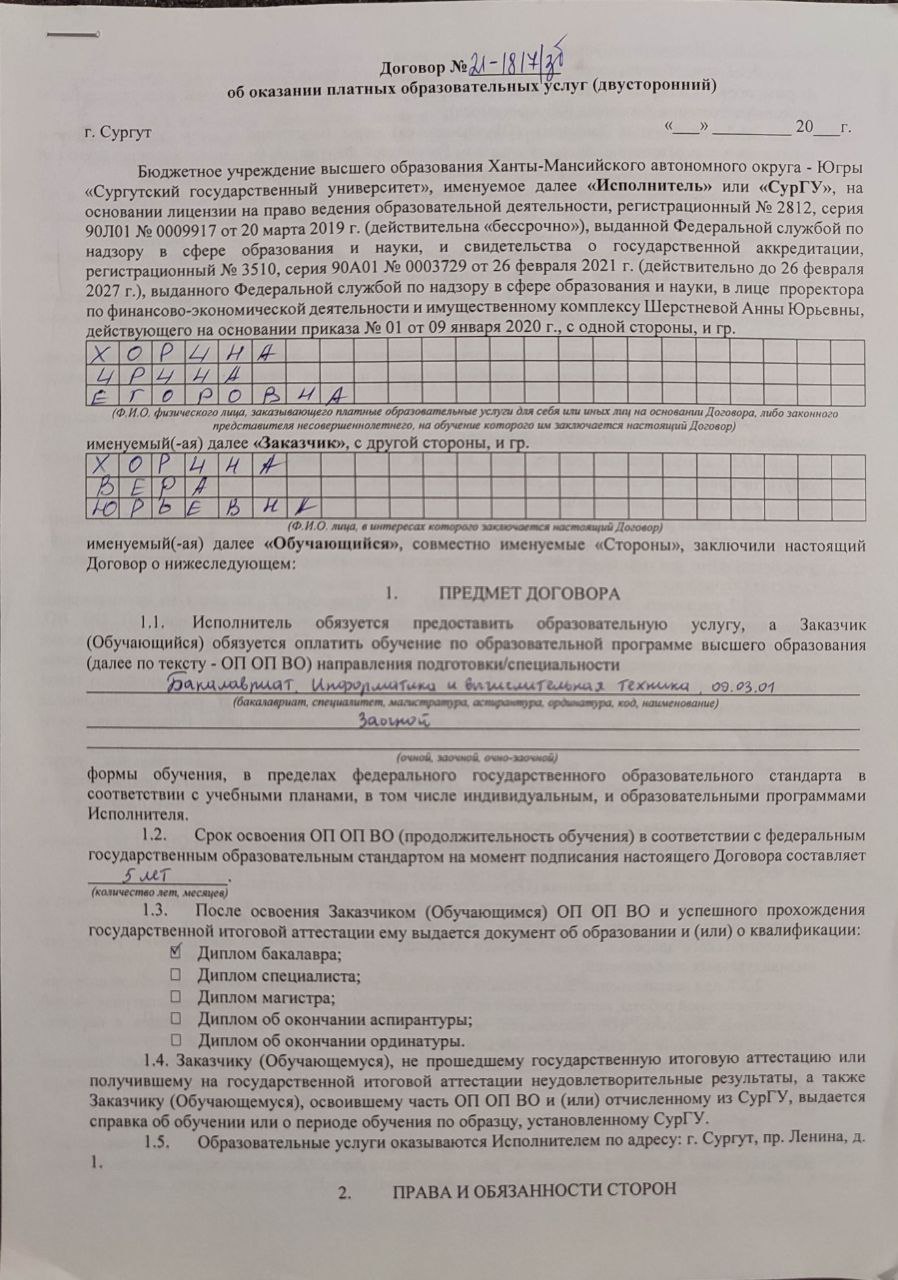 Договор № 21-1817/зб
об оказании платных образовательных услуг (двусторонний)
г. Сургут «___» _________ 20___г.
Бюджетное учреждение высшего образования Ханты-Мансийского автономного округа - Югры
«Сургутский государственный университет», именуемое далее «Исполнитель» или «СурГУ», на
основании лицензии на право ведения образовательной деятельности, регистрационный № 2812, серия
90Л01 № 0009917 от 20 марта 2019 г. (действительна «бессрочно»), выданной Федеральной службой по
надзору в сфере образования и науки, и свидетельства о государственной аккредитации,
регистрационный № 3510, серия 90А01 № 0003729 от 26 февраля 2021 г. (действительно до 26 февраля
2027 г.), выданного Федеральной службой по надзору в сфере образования и науки, в лице проректора
по финансово-экономической деятельности и имущественному комплексу Шерстневой Анны Юрьевны,
действующего на основании приказа № 01 от 09 января 2020 г., с одной стороны, и гр.
ХОРИНА
ИРИНА
ЕГОРОВНА
(Ф.И.О. физического лица, заказывающего платные образовательные услуги для себя или иных лиц на основании Договора, либо законного
представителя несовершеннолетнего, на обучение которого им заключается настоящий Договор)
именуемый(-ая) далее «Заказчик», с другой стороны, и гр.
ХОРИНА
ВЕРА
ЮРЬЕВНА
(Ф.И.О. лица, в интересах которого заключается настоящий Договор)
именуемый(-ая) далее «Обучающийся», совместно именуемые «Стороны», заключили настоящий
Договор о нижеследующем:
1. ПРЕДМЕТ ДОГОВОРА
1.1. Исполнитель обязуется предоставить образовательную услугу, а Заказчик
(Обучающийся) обязуется оплатить обучение по образовательной программе высшего образования
(далее по тексту - ОП ОП ВО) направления подготовки/специальности
Бакалавриат, Информатика и вычислительная техника, 09.03.01
(бакалавриат, специалитет, магистратура, аспирантура, ординатура, код, наименование)
Заочной
(очной, заочной, очно-заочной)
формы обучения, в пределах федерального государственного образовательного стандарта в
соответствии с учебными планами, в том числе индивидуальным, и образовательными программами
Исполнителя.
1.2. Срок освоения ОП ОП ВО (продолжительность обучения) в соответствии с федеральным
государственным образовательным стандартом на момент подписания настоящего Договора составляет
5 лет.
(количество лет, месяцев)
1.3. После освоения Заказчиком (Обучающимся) ОП ОП ВО и успешного прохождения
государственной итоговой аттестации ему выдается документ об образовании и (или) о квалификации:
☑ Диплом бакалавра;
☐ Диплом специалиста;
☐ Диплом магистра;
☐ Диплом об окончании аспирантуры;
☐ Диплом об окончании ординатуры.
1.4. Заказчику (Обучающемуся), не прошедшему государственную итоговую аттестацию или
получившему на государственной итоговой аттестации неудовлетворительные результаты, а также
Заказчику (Обучающемуся), освоившему часть ОП ОП ВО и (или) отчисленному из СурГУ, выдается
справка об обучении или о периоде обучения по образцу, установленному СурГУ.
1.5. Образовательные услуги оказываются Исполнителем по адресу: г. Сургут, пр. Ленина, д.
1.
2. ПРАВА И ОБЯЗАННОСТИ СТОРОН